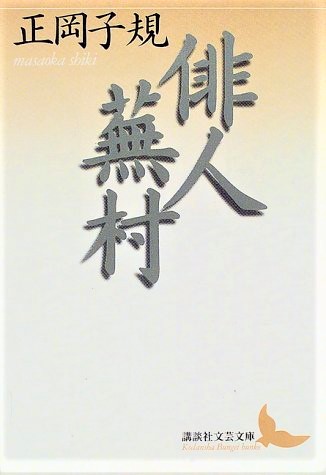 正岡子規
masaoka shiki
俳人
蕪村
講談社文芸文庫
Kodansha Bungei bunko